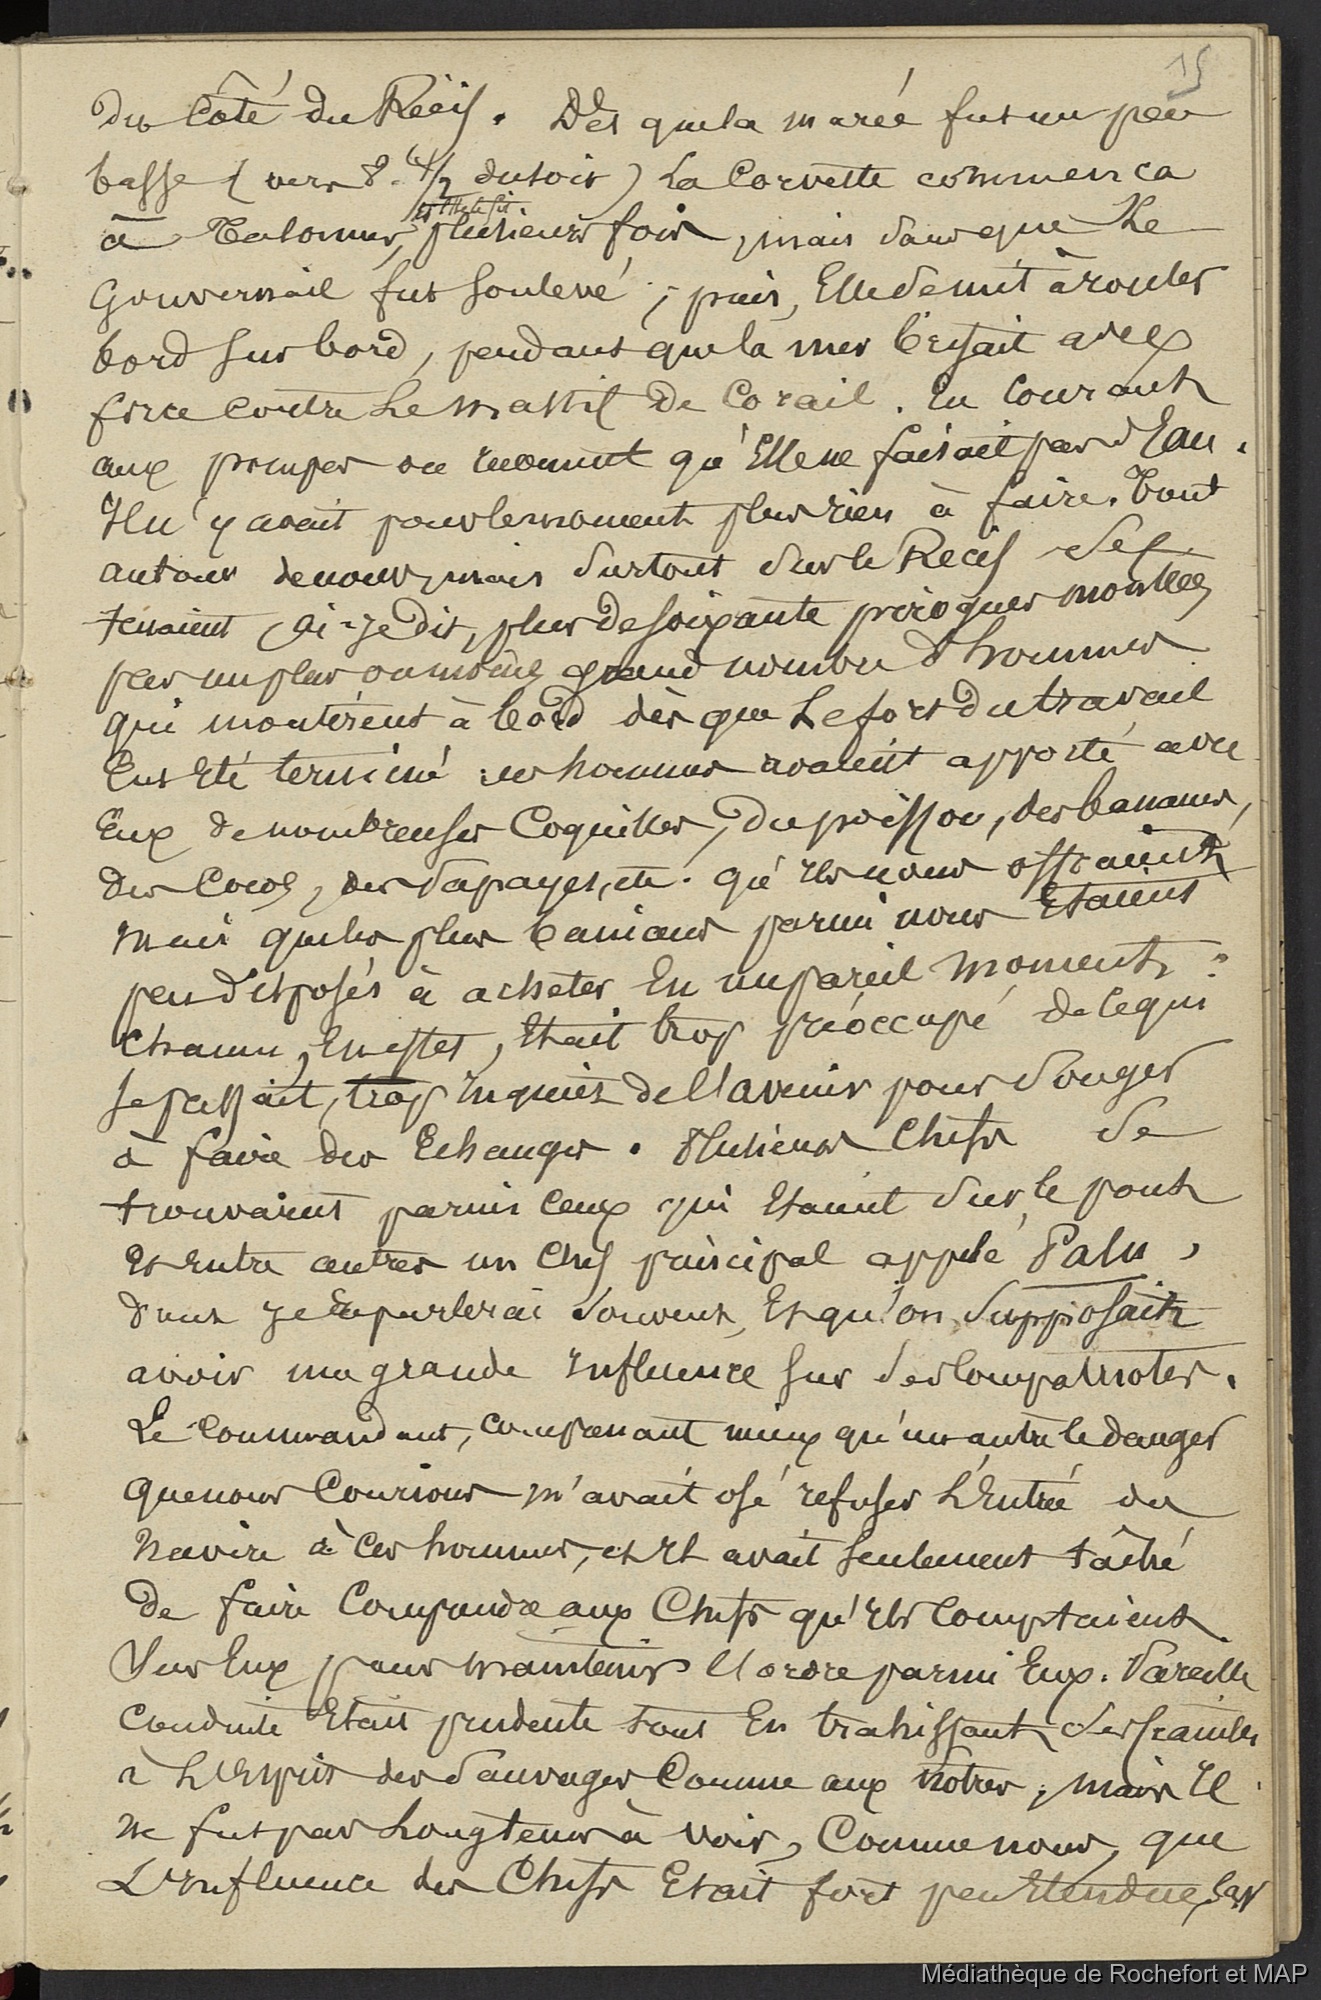 15
du Côté du Récif. Dès que la marée fut un peu
basse (vers 8 h 1/2 du soir) La Corvette commenca
à Talonner, plusieurs fois, mais sans que Le
Gouvernail fut soulevé ; puis, Elle se mit à rouler
bord sur bord, pendant que la mer brisait avec
force contre Le massif de Corail. En Courant
aux pompes on reconnut qu'Elle ne faisait pas d'Eau.
Il n'y avait pour le moment plus rien à faire. Tout
autour de nous, mais surtout sur le Recif se
tenaient, ai-je dit, plus de soixante pirogues montées
par un plus ou moins grand nombre d'hommes
qui montèrent à bord dès que Le fort du travail
Eut Eté terminé. Ces hommes avaient apporté avec
Eux de nombreuses Coquilles, du poisson, des bananes,
des Cocos, des Papayes, etc. qu'Ils nous offraient
mais que les plus banians parmi nous Etaient
peu disposés à acheter En un pareil moment :
Chacun, En effet, Etait trop préoccupé de Ce qui
se passait, trop Inquiet de l'avenir pour songer
à faire des Echanges. Plusieurs Chefs se
trouvaient parmi Ceux qui Etaient sur le pont
Et Entre autres un Chef principal appelé Palu,
dont je reparlerai souvent, Et qu'on supposait
avoir une grande Influence sur ses Compatriotes.
Le Commandant, comprenant mieux qu'un autre le danger
que nous Courions n'avait osé refuser L'Entrée du
Navire à Ces hommes, et Il avait seulement tâché
de faire Comprendre aux Chefs qu'Ils Comptaient
sur Eux pour maintenir l'ordre parmi Eux. Pareille
Conduite Etait prudente sans En trahissant ses craintes
à L'Esprit des Sauvages Comme aux Notres ; mais Il
ne fut pas Longtems à voir, Comme nous, que
L'Influence des Chefs Etait fort peu Etendue sur
Médiathèque de Rochefort et MAP